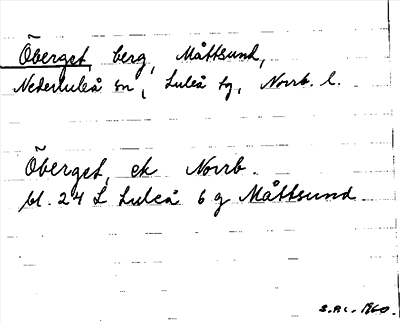 Öberget, berg, Måttsund,
Nederluleå sn, Luleå tg, Norrb. l.
Öberget, ek Norrb.
bl. 24 L Luleå 6 g Måttsund
1960.